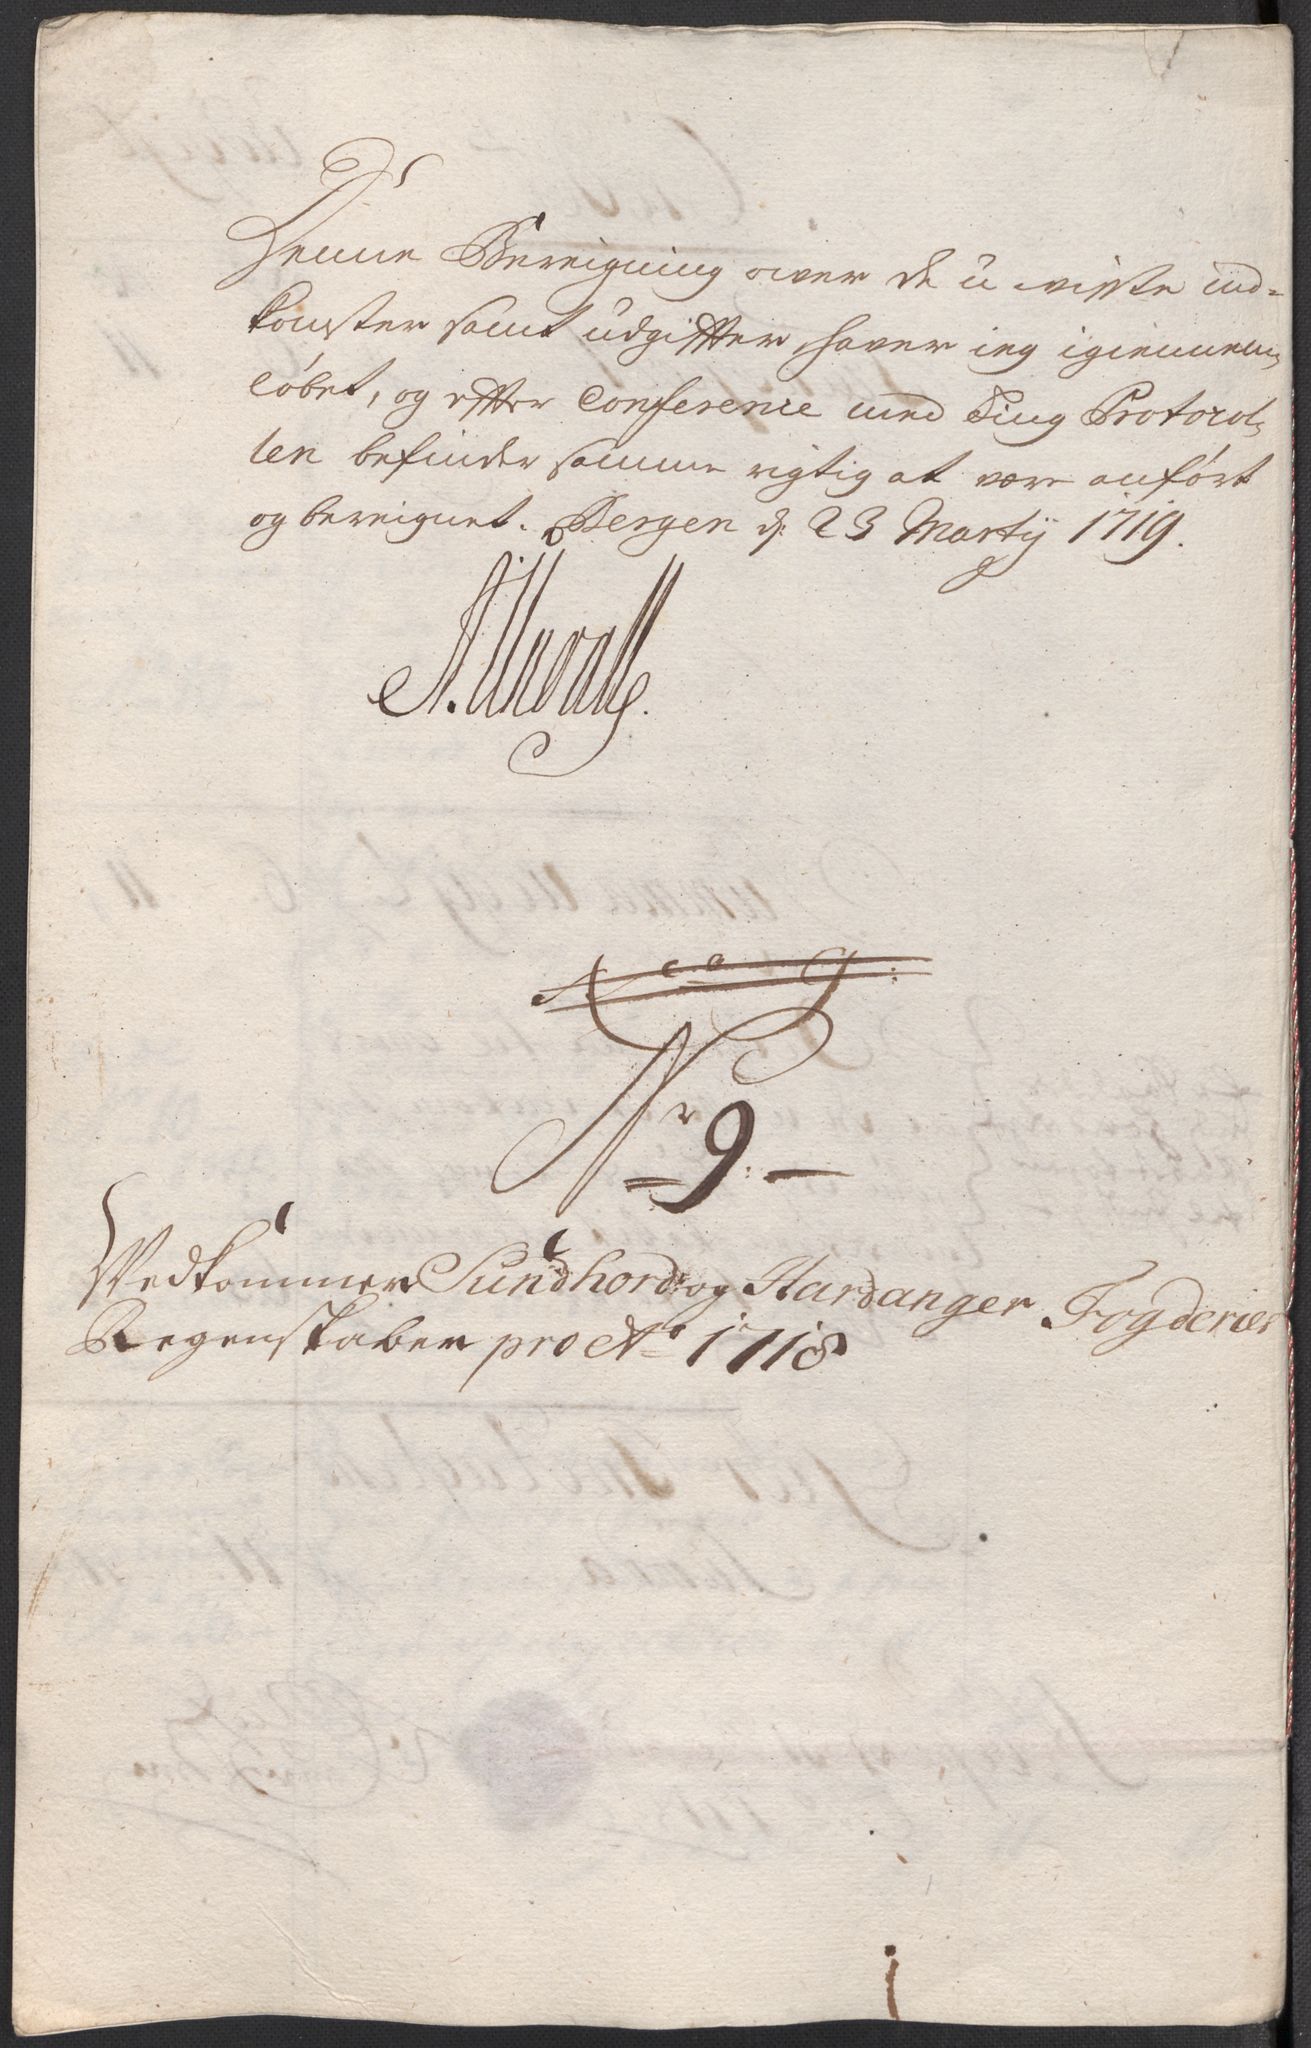 Denne Bereigning over de u-visse ind=
komster samt udgiffter, haver ieg igiennem
løbet, og effter Conference med Ting Protocol
len befinder samme rigtig at være anført
og bereignet. Bergen d: 23 Martij 1719.
Nr 9.
Vedkommer Sundhord: og Hardanger Fogderies
Regenskaber pro Ao 1718